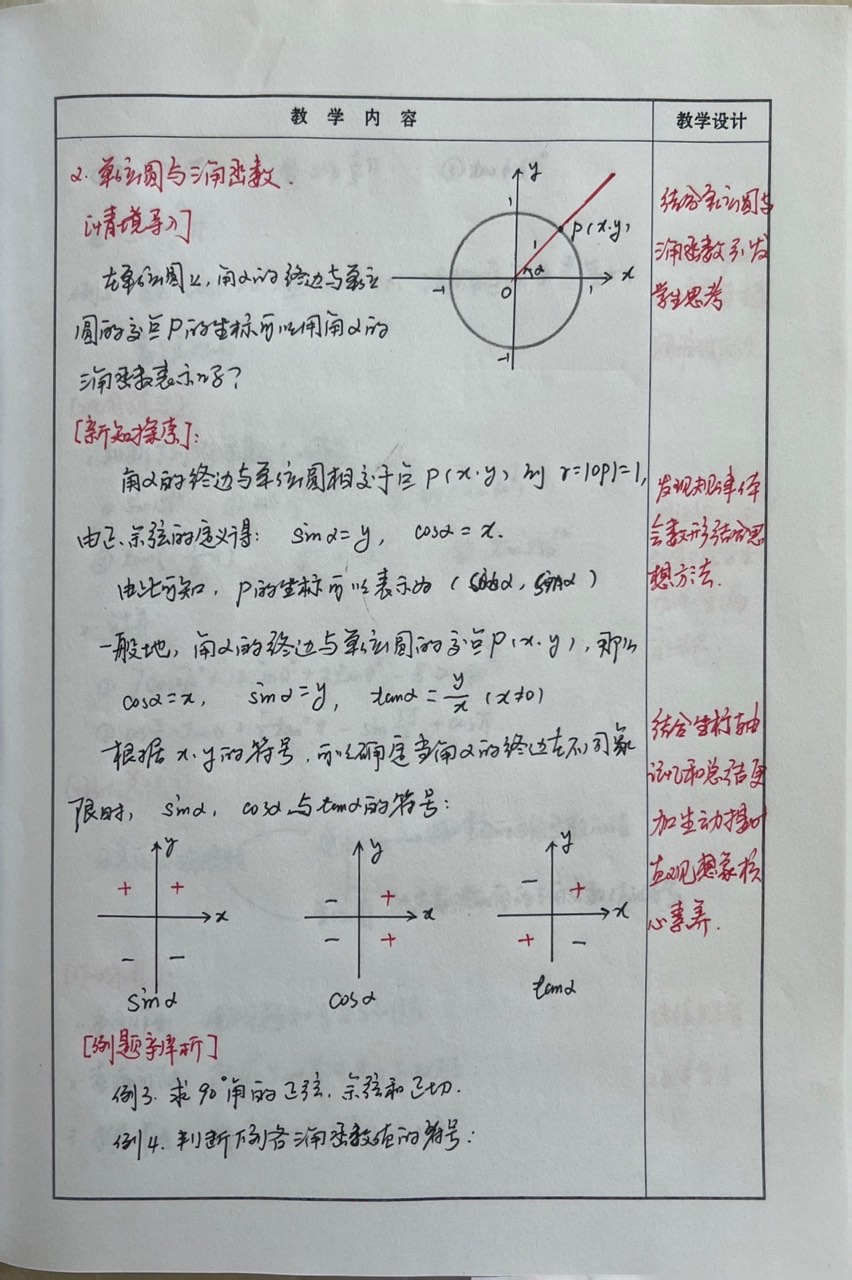 教学内容
教学设计
2. 单位圆与三角函数.
[情境导入]
在单位圆上,角α的终边与单位
圆的交点P的坐标可以用角α的
三角函数表示吗?
y
1
P(x.y)
1
α
-1
O
1
x
-1
结合单位圆与
三角函数引发
学生思考
[新知探索]:
角α的终边与单位圆相交于点P(x.y) 则 r=|OP|=1,
由正、余弦的定义得: sinα=y, cosα=x.
由此可知, P的坐标可以表示为 (cosα, sinα)
一般地, 角α的终边与单位圆的交点P(x.y), 那么
cosα=x, sinα=y, tanα=y/x (x≠0)
根据x.y的符号, 可以确定当角α的终边在不同象
限时, sinα, cosα与tanα的符号:
发现规律体
会数形结合思
想方法.
结合坐标轴
记忆和总结更
加生动提升
直观想象核
心素养.
y y y
+ + - + - +
x x x
- - - + + -
sinα cosα tanα
[例题辨析]
例3. 求90°角的正弦. 余弦和正切.
例4. 判断下列各三角函数值的符号: